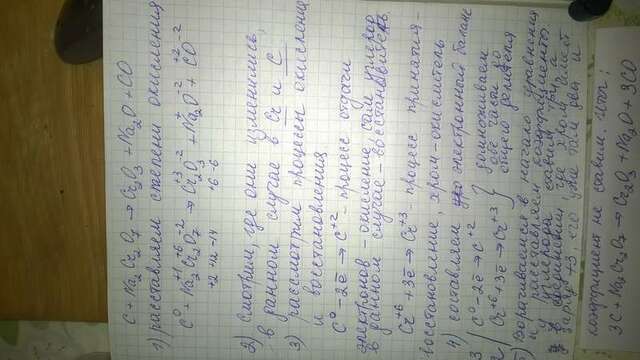 C + Na₂Cr₂O₇ → Cr₂O₃ + Na₂O + CO
1) расставляем степени окисления
C⁰ + Na₂⁺¹Cr₂⁺⁶O₇⁻² → Cr₂⁺³O₃⁻² + Na₂⁺O⁻² + C⁺²O⁻²
+2 +12 -14 +6 -6
2) смотрим, где они изменились,
в данном случае в Cr и C
3) рассмотрим процессы окисления
и восстановления
C⁰ - 2ē → C⁺² - процесс отдачи
электронов - окисление, сам углерод
в данном случае - восстановитель.
Cr⁺⁶ + 3ē → Cr⁺³ - процесс принятия
восстановление, хром - окислитель
4) составляем электронный баланс
3 | C⁰ - 2ē → C⁺² } домножаем
2 | Cr⁺⁶ + 3ē → Cr⁺³ } обе части до
общего делителя
5) Возвращаемся в начало уравнения
и расставляем коэффициенты
перед углеродом ставим три, а
хром имеет
заряд +3 его уже там два и
коэффициент не ставим. Итог:
3C + Na₂Cr₂O₇ → Cr₂O₃ + Na₂O + 3CO